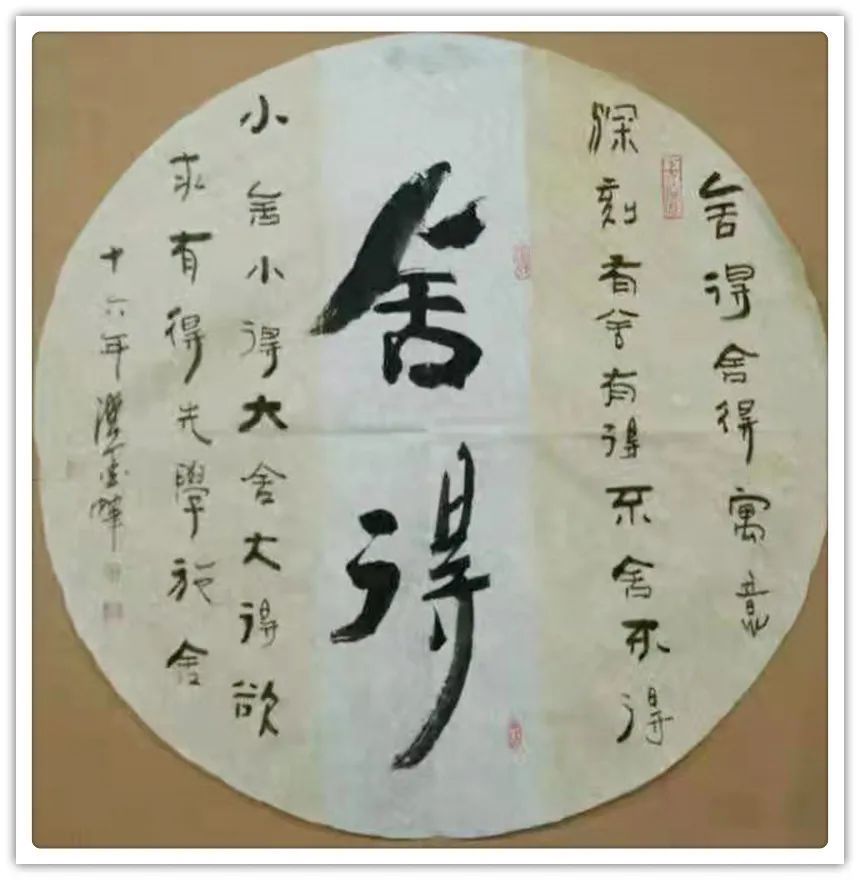 舍得舍得寓意
深刻有舍有得不舍不得
舍得
小舍小得大舍大得欲
求有得先學施舍
十六年